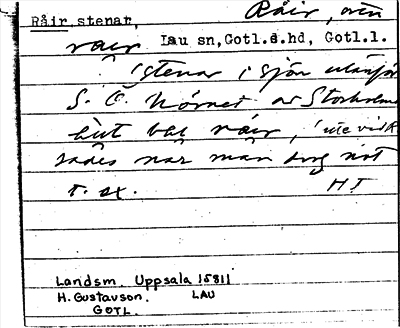 Råir, även
Råir, stenar,
rair Lau sn, Gotl.s.hd, Gotl.l.
stenar i sjön utanför
S. O. hörnet av Storholmen
bat råir, ute vid R
sades när man drog not
t. ex. HJ
Landsm. Uppsala 15811
H. Gustavson. LAU
GOTL.